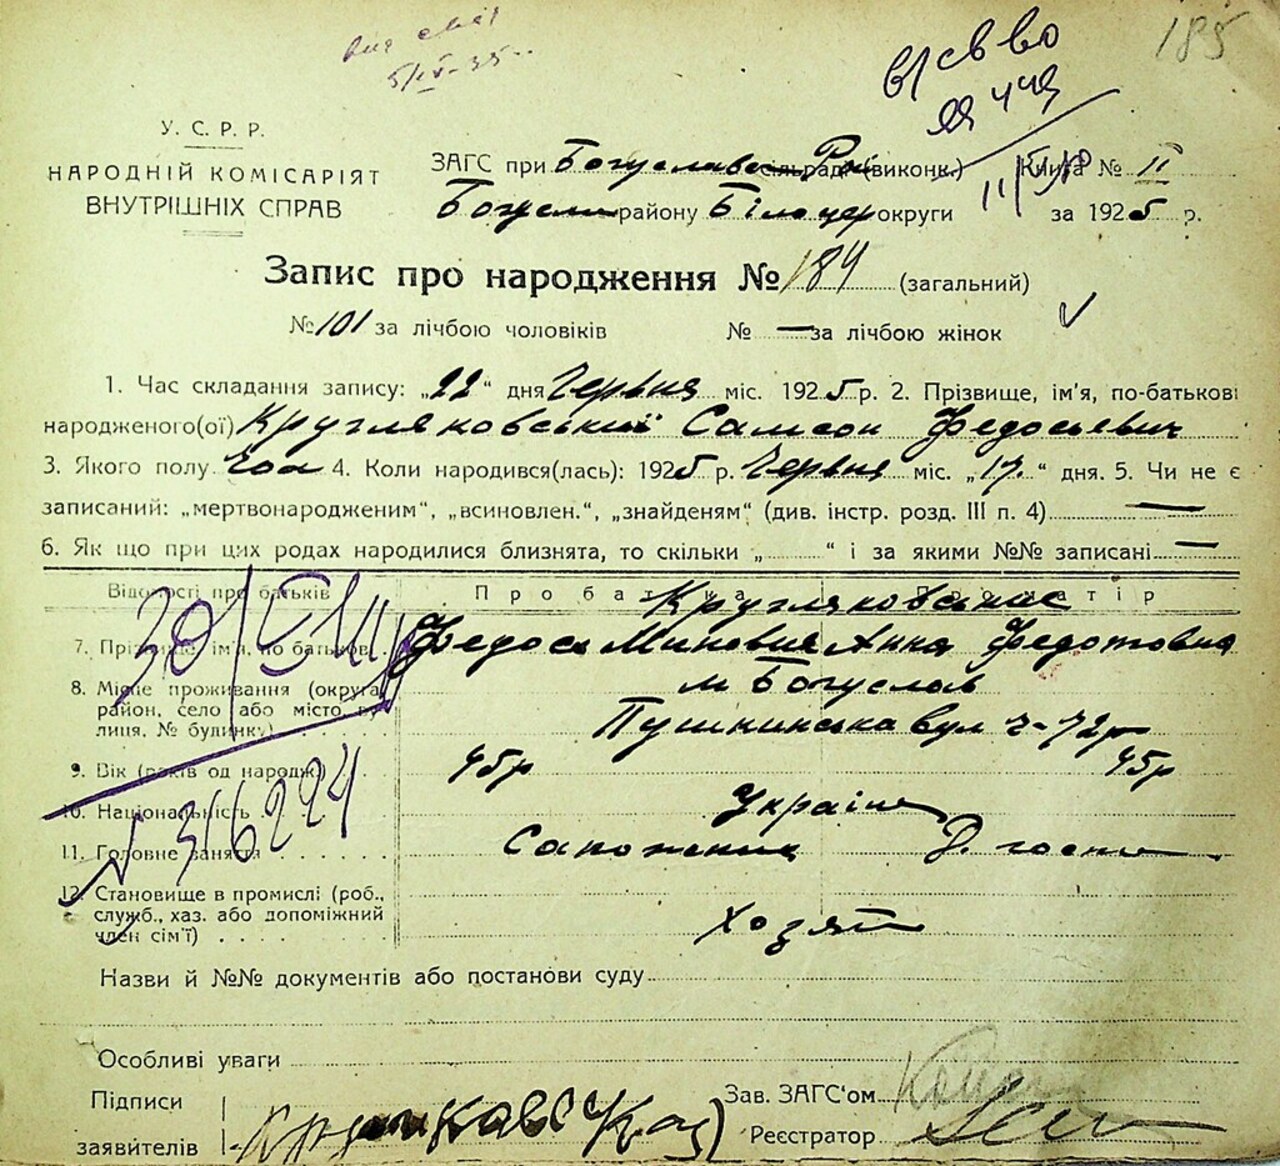 185
5/IV-35
У. С. Р. Р.
НАРОДНІЙ КОМІСАРІЯТ
ВНУТРІШНІХ СПРАВ
ЗАГС при Богуславськ сільраді (виконк.) Книга № II
Богусл району Білоцер округи за 1925 р.
Запис про народження № 184 (загальний)
№ 101 за лічбою чоловіків № — за лічбою жінок
1. Час складання запису: „22“ дня Червня міс. 1925 р. 2. Прізвище, ім'я, по-батькові
народженого(ої) Кругляковський Самсон Федосьевич
3. Якого полу Чол 4. Коли народився(лась): 1925 р. Червня міс. „17.“ дня. 5. Чи не є
записаний: „мертвонародженим“, „всиновлен.“, „знайденям“ (див. інстр. розд. III п. 4) —
6. Як що при цих родах народилися близнята, то скільки „ “ і за якими №№ записані —
Відомості про батьків Про батька Про матір
Кругляковськие
7. Прізвище, ім'я, по батьков. Федось Минович Анна Федотовна
8. Місце проживання (округа, м Богуслав
район, село або місто, ву-
лиця, № будинку) Пушкинська вул ч-72
9. Вік (років од народж.) 45р 45р
10. Національність Україн
11. Головне заняття Сапожник Д. госп
12. Становище в промислі (роб.,
служб., хаз. або допоміжний
член сім'ї) Хозят
№ 316224
Назви й №№ документів або постанови суду
Особливі уваги
Підписи
заявителів
Зав. ЗАГС'ом
Реєстратор